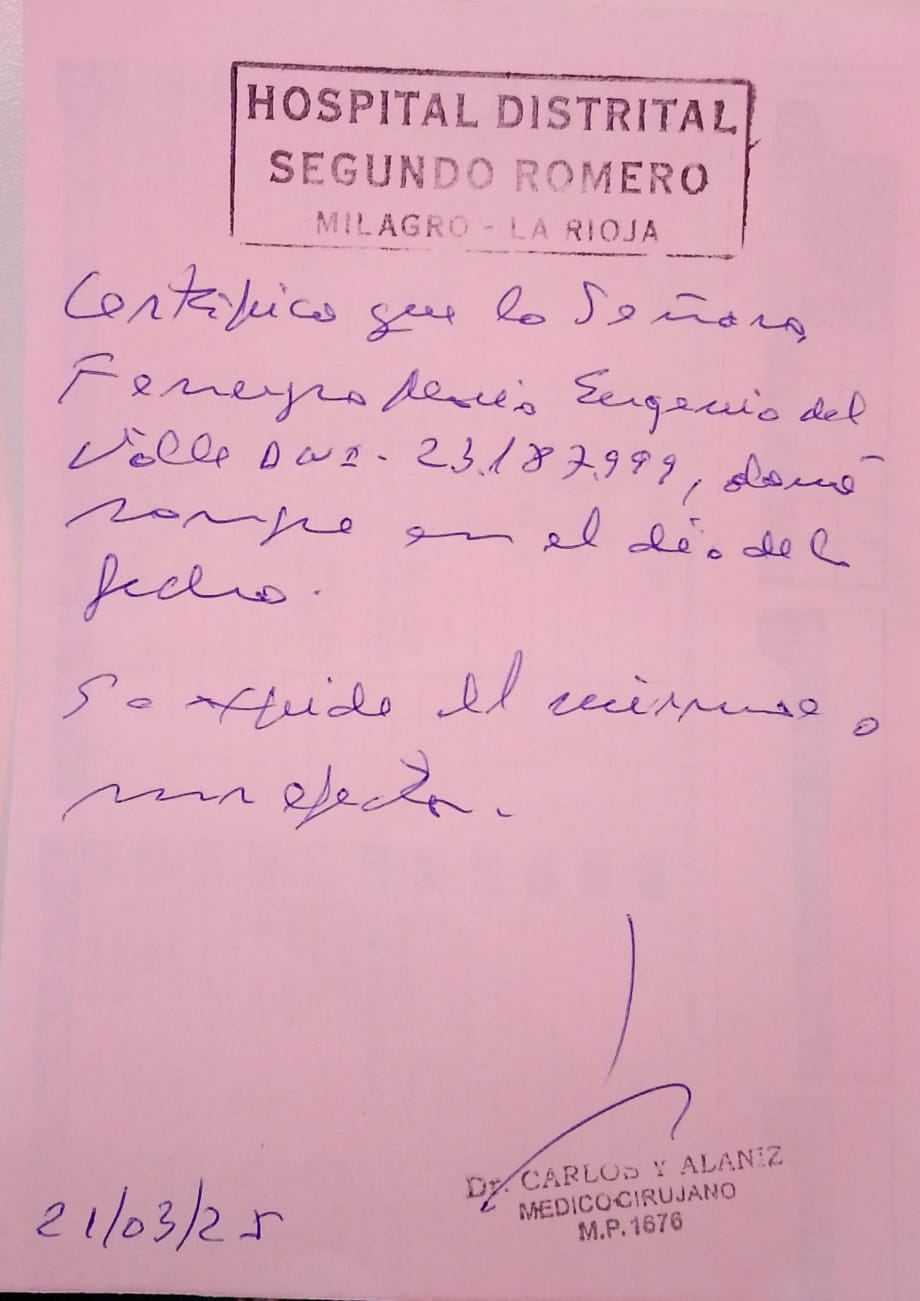 HOSPITAL DISTRITAL
SEGUNDO ROMERO
MILAGRO - LA RIOJA
Certifico que la Señora
Ferreyra María Eugenia del
Valle DNI - 23.187.999, donó
sangre en el día de la
fecha.
Se expide el a
sus efectos.
21/03/25
Dr. CARLOS Y ALANIZ
MEDICO CIRUJANO
M.P. 1676